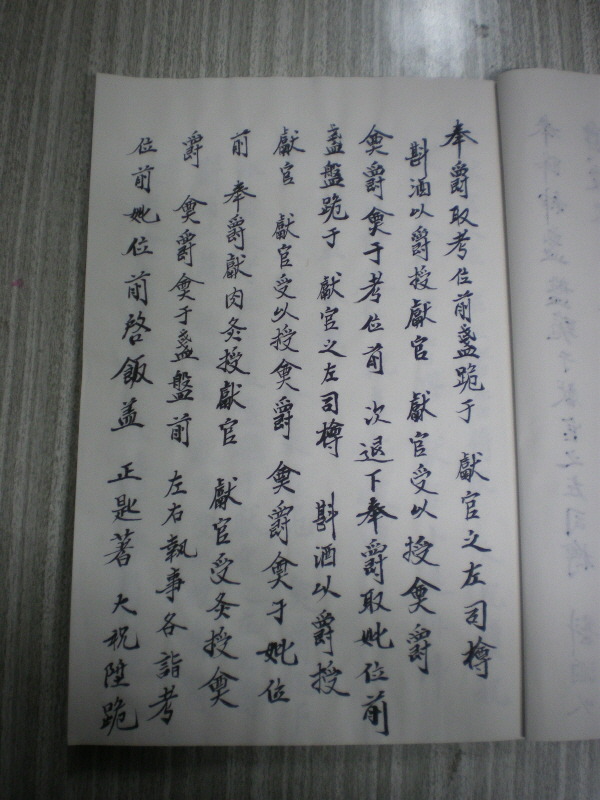 奉爵取考位前盞跪于 獻官之左司樽
斟酒以爵授獻官 獻官受以授奠爵
奠爵奠于考位前 次退下奉爵取妣位前
盞盤跪于 獻官之左司樽 斟酒以爵授
獻官 獻官受以授奠爵 奠爵奠于妣位
前 奉爵獻肉炙授獻官 獻官受炙授奠
爵 奠爵奠于盞盤前 左右執事各詣考
位前妣位前啓飯盖 正匙著 大祝陞跪